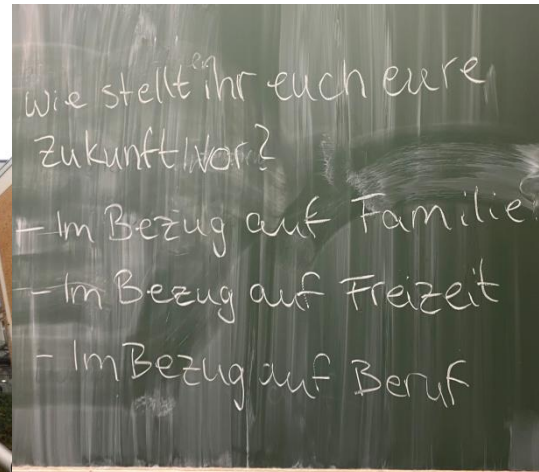 wie stellt ihr euch eure
Zukunft vor?
- Im Bezug auf Familie
- Im Bezug auf Freizeit
- Im Bezug auf Beruf